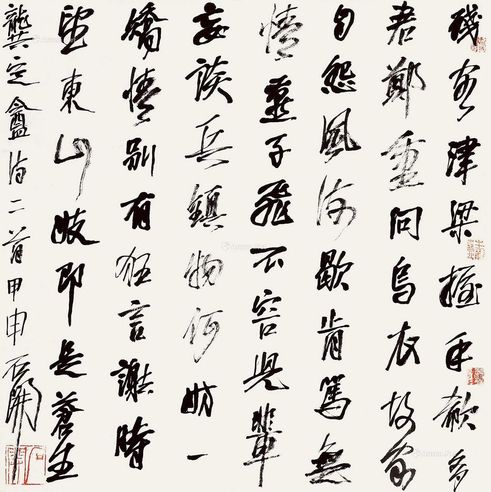 殘客津梁握手欷多
君鄭重問烏衣故家
自怨風流歇肯罵無
情燕子飛不容兒輩
妄談兵鎮物何妨一
矯情別有狂言謝時
望東山妓即是蒼生
龔定盦詩二首甲申石開